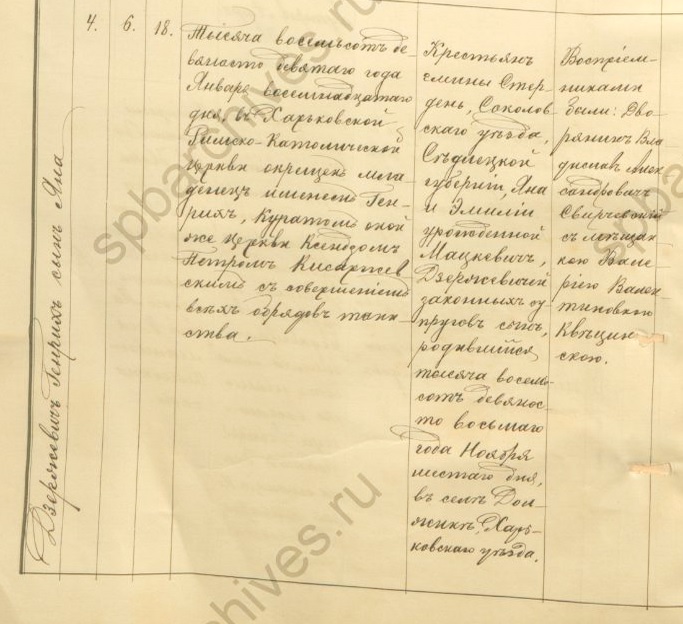 Дзержевичъ Генрихъ сынъ Яна
4.
6.
18.
Тысяча восемьсотъ де-
вяносто девятаго года
Января восемнадцатаго
дня, въ Харьковской
Римско-Католической
Церкви окрещенъ мла-
денецъ именемъ Ген-
рихъ, Куратомъ оной
же Церкви Ксендзомъ
Петромъ
скимъ съ совершеніемъ
всѣхъ обрядовъ таин-
ства.
Крестьянъ
гмины Стер-
день, Соколов-
скаго уѣзда,
Сѣдлецкой
губерніи, Яна
и Эмиліи
урожденной
Мацкевичъ,
Дзержевичей
законныхъ су-
пруговъ сынъ,
родившійся
тысяча восемь-
сотъ девянос-
то восьмаго
года Ноября
шестаго дня,
въ селѣ Дол-
жикѣ, Харь-
ковскаго уѣзда.
Воспріем-
никами
были: Дво-
рянинъ Вла-
диславъ Алек-
сандровичъ
Свирчевскій
съ мѣщан-
кою Вале-
ріею Вален-
тиновною
Квѣцин-
скою.
spbarchives.ru
spba
chives.ru